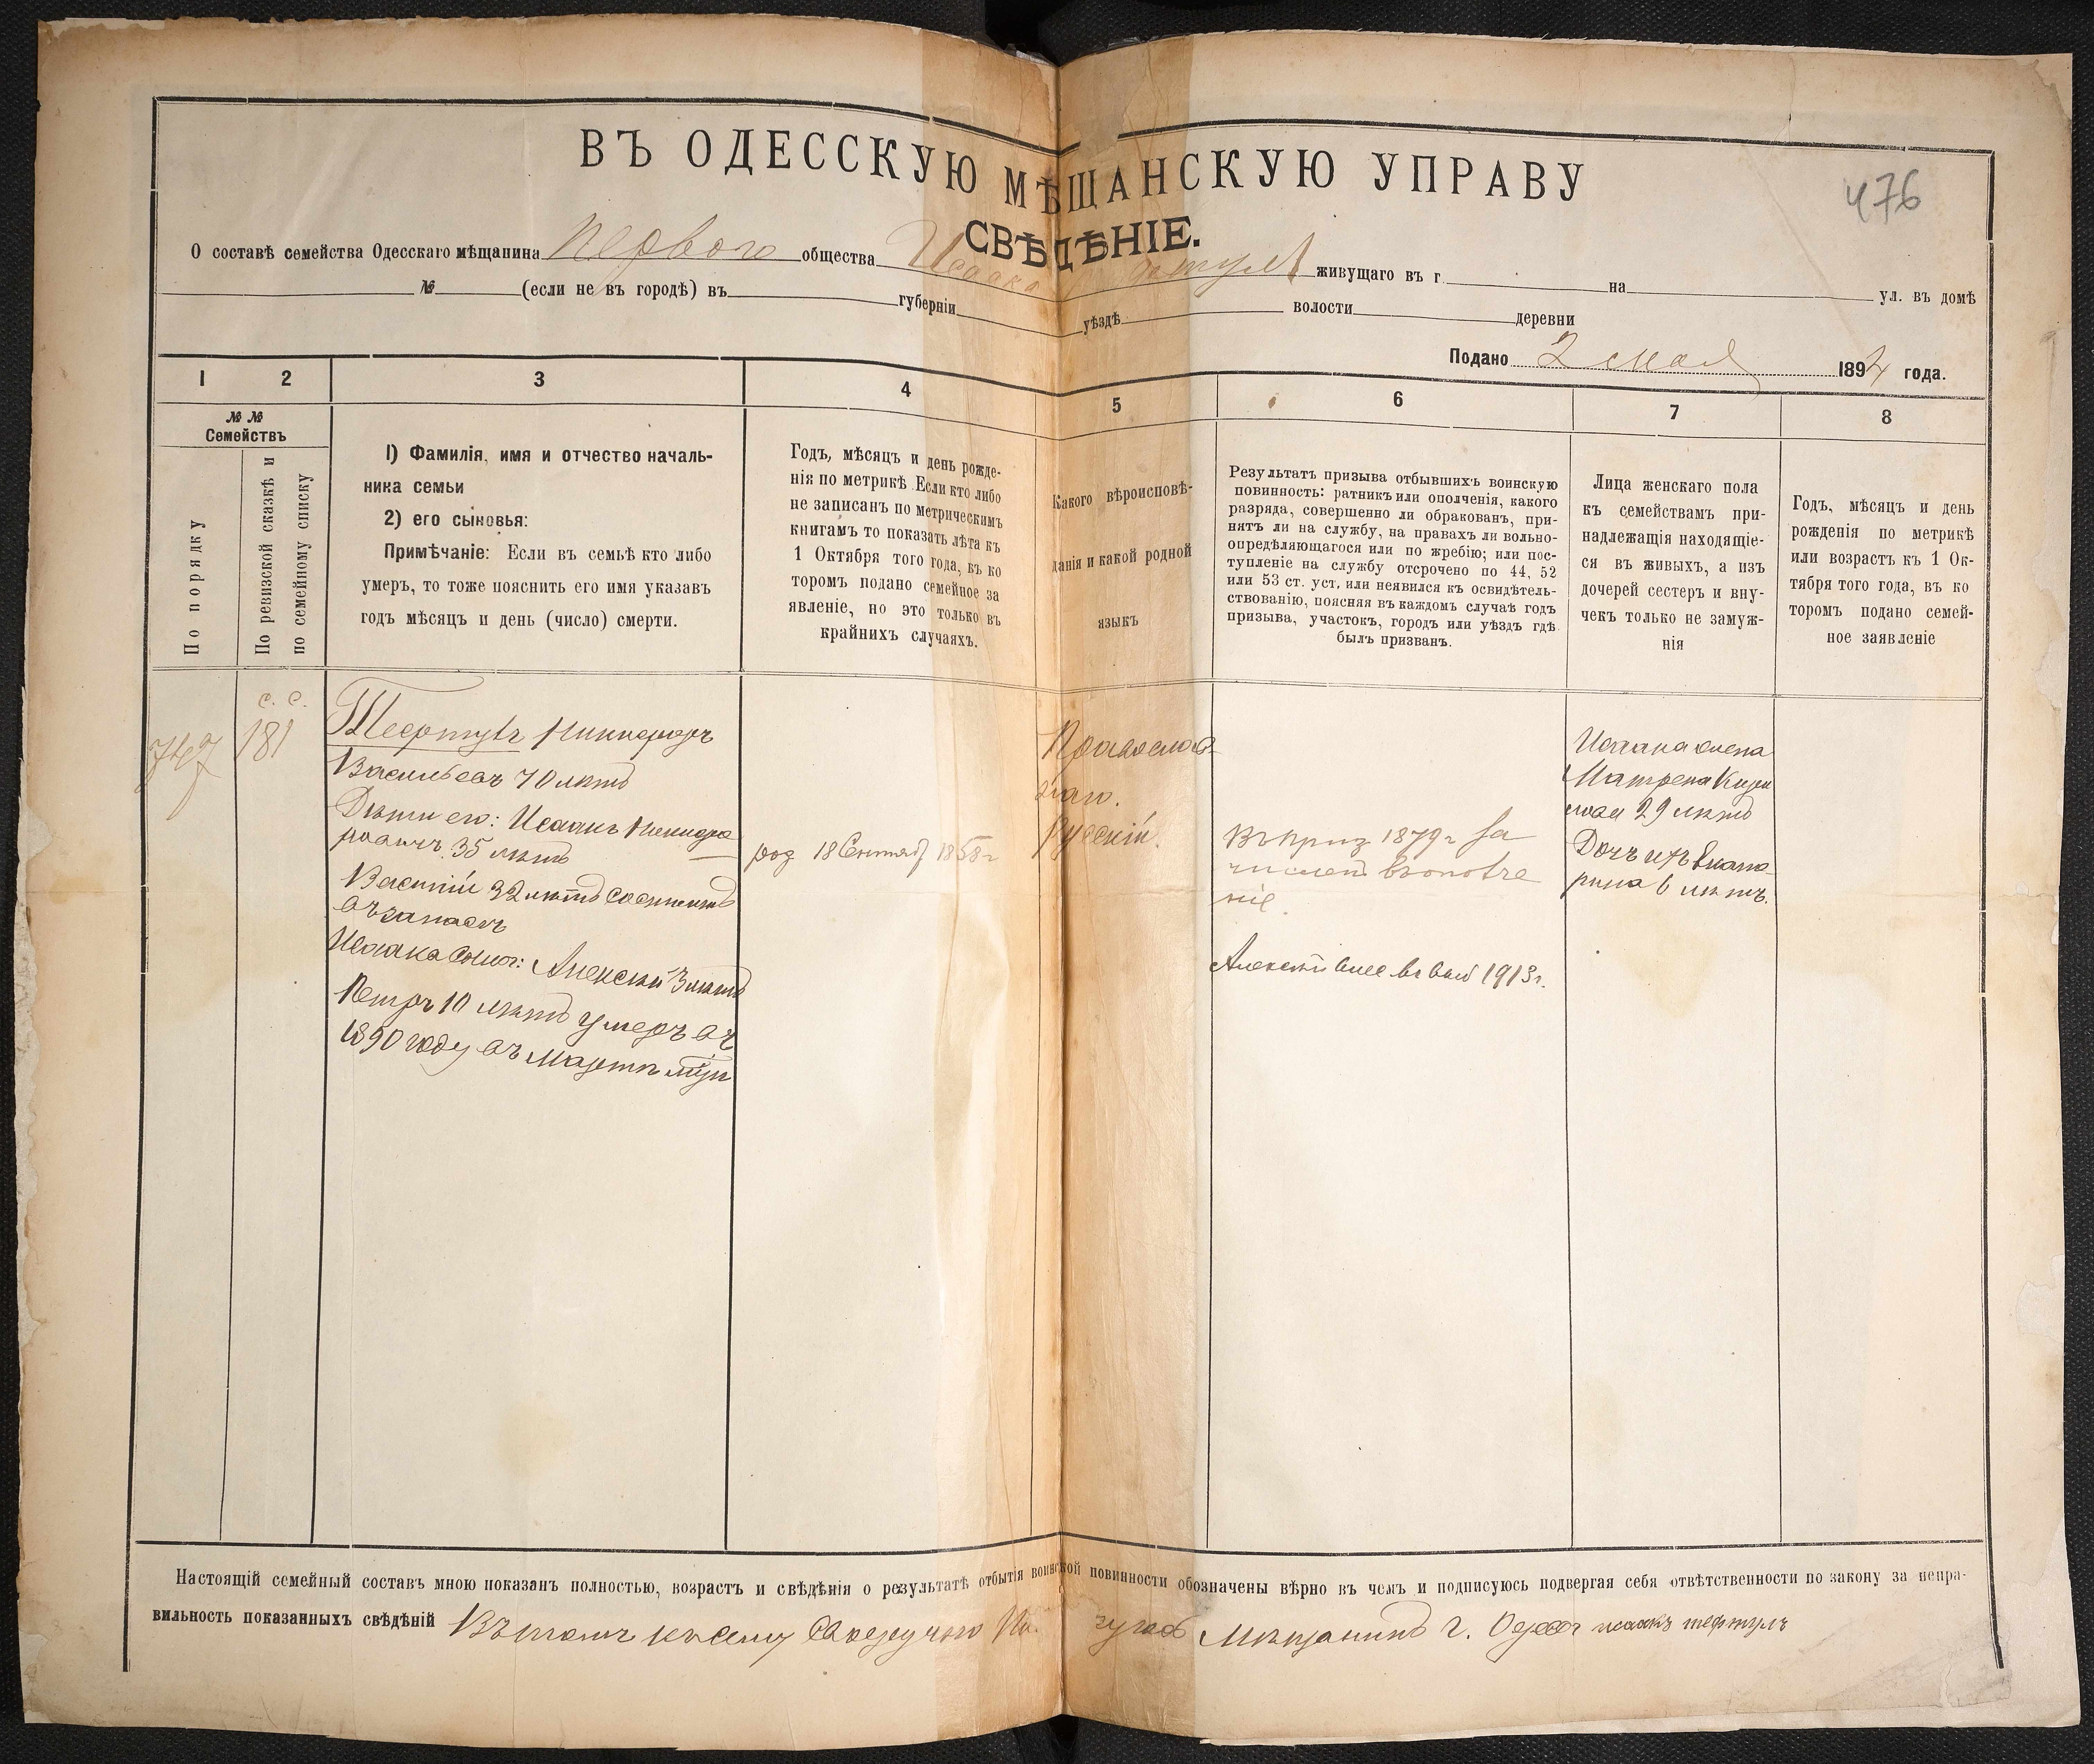 476
ВЪ ОДЕССКУЮ МѢЩАНСКУЮ УПРАВУ
СВѢДѢНІЕ.
О составѣ семейства Одесскаго мѣщанина Перваго общества Исаака живущаго въ г. на ул. въ домѣ
№ (если не въ городѣ) въ губерніи уѣздѣ волости деревни
Подано 2 мая 1894 года.
1 2 3 4 5 6 7 8
№ № Семействъ
По порядку
По ревизской сказкѣ и
по семейному списку
1) Фамилія, имя и отчество началь-
ника семьи
2) его сыновья:
Примѣчаніе: Если въ семьѣ кто либо
умеръ, то тоже пояснить его имя указавъ
годъ мѣсяцъ и день (число) смерти.
Годъ, мѣсяцъ и день рожде-
нія по метрикѣ Если кто либо
не записанъ по метрическимъ
книгамъ то показать лѣта къ
1 Октября того года, въ ко
торомъ подано семейное за
явленіе, но это только въ
крайнихъ случаяхъ.
Какого вѣроисповѣ-
данія и какой родной
языкъ
Результатъ призыва отбывшихъ воинскую
повинность: ратникъ или ополченія, какого
разряда, совершенно ли обракованъ, при-
нятъ ли на службу, на правахъ ли вольно-
опредѣляющагося или по жребію; или пос-
тупленіе на службу отсрочено по 44, 52
или 53 ст. уст. или неявился къ освидѣтель-
ствованію, поясняя въ каждомъ случаѣ годъ
призыва, участокъ, городъ или уѣздъ гдѣ
былъ призванъ.
Лица женскаго пола
къ семействамъ при-
надлежащія находящіе-
ся въ живыхъ, а изъ
дочерей сестеръ и вну-
чекъ только не замуж-
нія
Годъ, мѣсяцъ и день
рожденія по метрикѣ
или возрастъ къ 1 Ок-
тября того года, въ ко
торомъ подано семей-
ное заявленіе
с. с.
181
Никифоръ
Васильевъ 70 лѣтъ
Дѣти его: Исаакъ Никифо
ровичъ 35 лѣтъ
Василій 32 лѣтъ состоитъ
въ запасѣ
Исаака сынъ: Алексѣй 3 лѣтъ
Петръ 10 лѣтъ умеръ въ
1890 году въ Мартѣ
род 18 Сентяб 1858 г
Православ-
наго.
Русскій.
Въ приз 1879 г за
численъ въ ополче
ніе.
Алексѣй 1913 г.
Исаака жена
Матрена
29 лѣтъ
Дочь ихъ Екате
рина 6 лѣтъ.
Настоящій семейный составъ мною показанъ полностью, возрастъ и свѣдѣнія о результатѣ отбытія воинской повинности обозначены вѣрно въ чемъ и подписуюсь подвергая себя отвѣтственности по закону за непра-
вильность показанныхъ свѣдѣній Въ томъ къ сему мѣщанинъ г. Одессы исаакъ